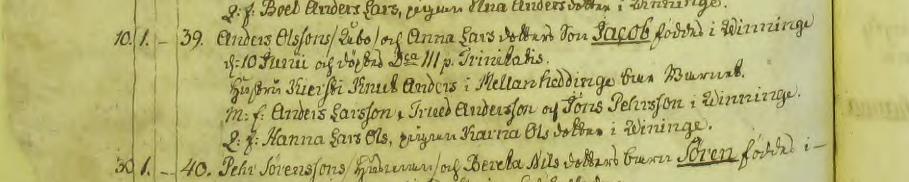 Q: f: Boel Anders Lars, pigan Elna Anders dotter i Winninge.
10. 1. – 39. Anders Olssons /Åbo/ och Anna Lars dotters Son Jacob föddes i Winninge
d: 10 Junii och döptes Dca III p. Trinitatis.
Hustru Kiersti Knut Anders i Mellanheddinge bar Barnet.
M: f: Anders Larsson, Trued Andersson och Jöns Pehrsson i Winninge.
Q: f: Hanna Lars Ols, pigan Karna Ols dotter i Wininge.
30 1. – 40. Pehr Sörenssons /Husman/ och Bereta Nils dotters barn Sören föddes i –